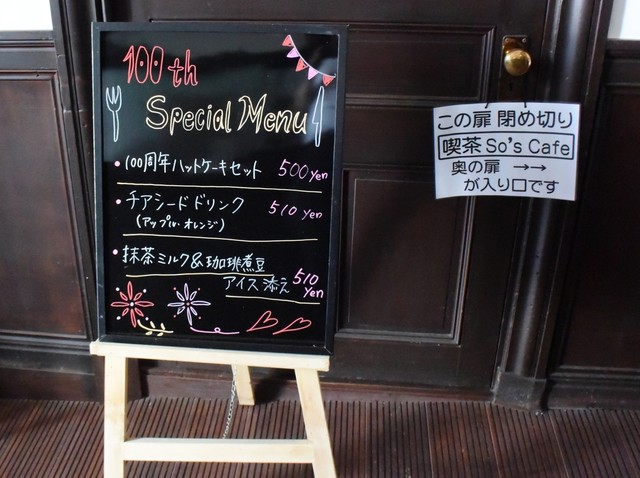 100th
Special Menu
・100周年ハットケーキセット 500yen
・チアシードドリンク 510yen
(アップル・オレンジ)
・抹茶ミルク&珈琲煮豆
アイス添え 510yen
この扉 閉め切り
喫茶 So's Cafe
奥の扉 →→
が入り口です